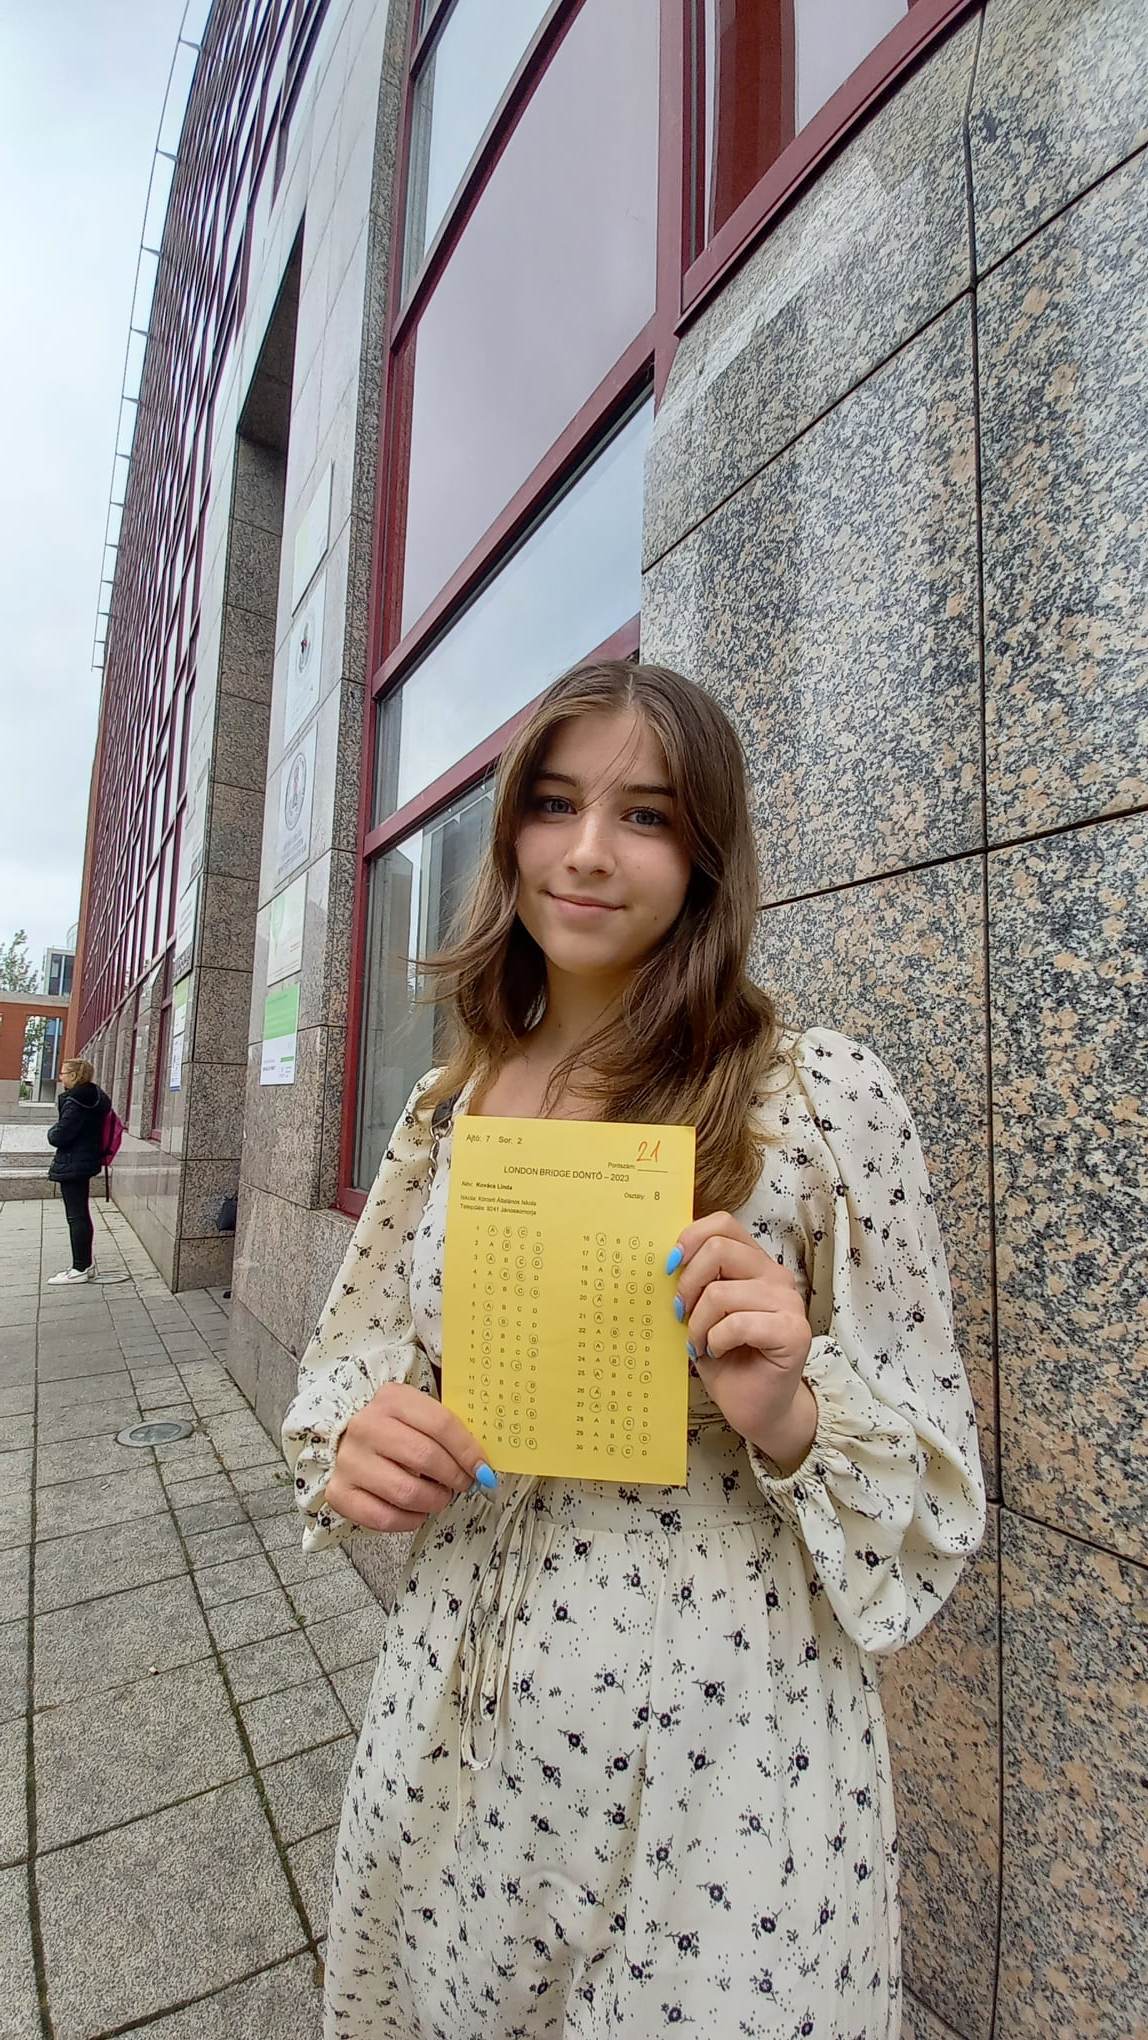 Ajtó: 7 Sor: 2
Pontszám: 21
LONDON BRIDGE DÖNTŐ – 2023
Név: Kovács Linda
Osztály: 8
Iskola: Körzeti Általános Iskola
Település: 9241 Jánossomorja
1 A B C D
2 A B C D
3 A B C D
4 A B C D
5 A B C D
6 A B C D
7 A B C D
8 A B C D
9 A B C D
10 A B C D
11 A B C D
12 A B C D
13 A B C D
14 A B C D
A B C D
16 A B C D
17 A B C D
18 A B C D
19 A B C D
20 A B C D
21 A B C D
22 A B C D
23 A B C D
24 A B C D
25 A B C D
26 A B C D
27 A B C D
28 A B C D
29 A B C D
30 A B C D